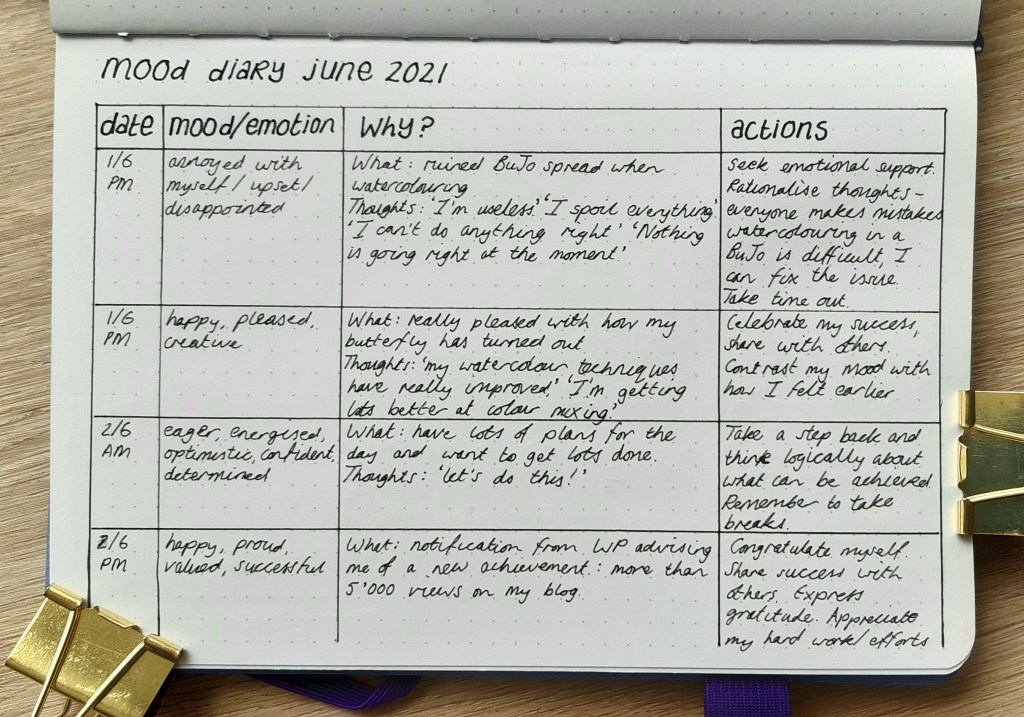 mood diary june 2021
date
mood/emotion
Why?
actions
1/6
PM
annoyed with
myself/ upset/
disappointed
What: ruined BuJo spread when
watercolouring
Thoughts: 'I'm useless' 'I spoil everything'
'I can't do anything right' 'Nothing
is going right at the moment'
Seek emotional support.
Rationalise thoughts -
everyone makes mistakes
watercolouring in a
BuJo is difficult, I
can fix the issue.
Take time out.
1/6
PM
happy, pleased,
creative
What: really pleased with how my
butterfly has turned out
Thoughts: 'my watercolour techniques
have really improved', 'I'm getting
lots better at colour mixing'
Celebrate my success,
share with others.
Contrast my mood with
how I felt earlier
2/6
AM
eager, energised,
optimistic, confident,
determined
What: have lots of plans for the
day and want to get lots done.
Thoughts: 'let's do this!'
Take a step back and
think logically about
what can be achieved.
Remember to take
breaks.
2/6
PM
happy, proud,
valued, successful
What: notification from WP advising
me of a new achievement: more than
5'000 views on my blog.
Congratulate myself.
Share success with
others. Express
gratitude. Appreciate
my hard work/efforts